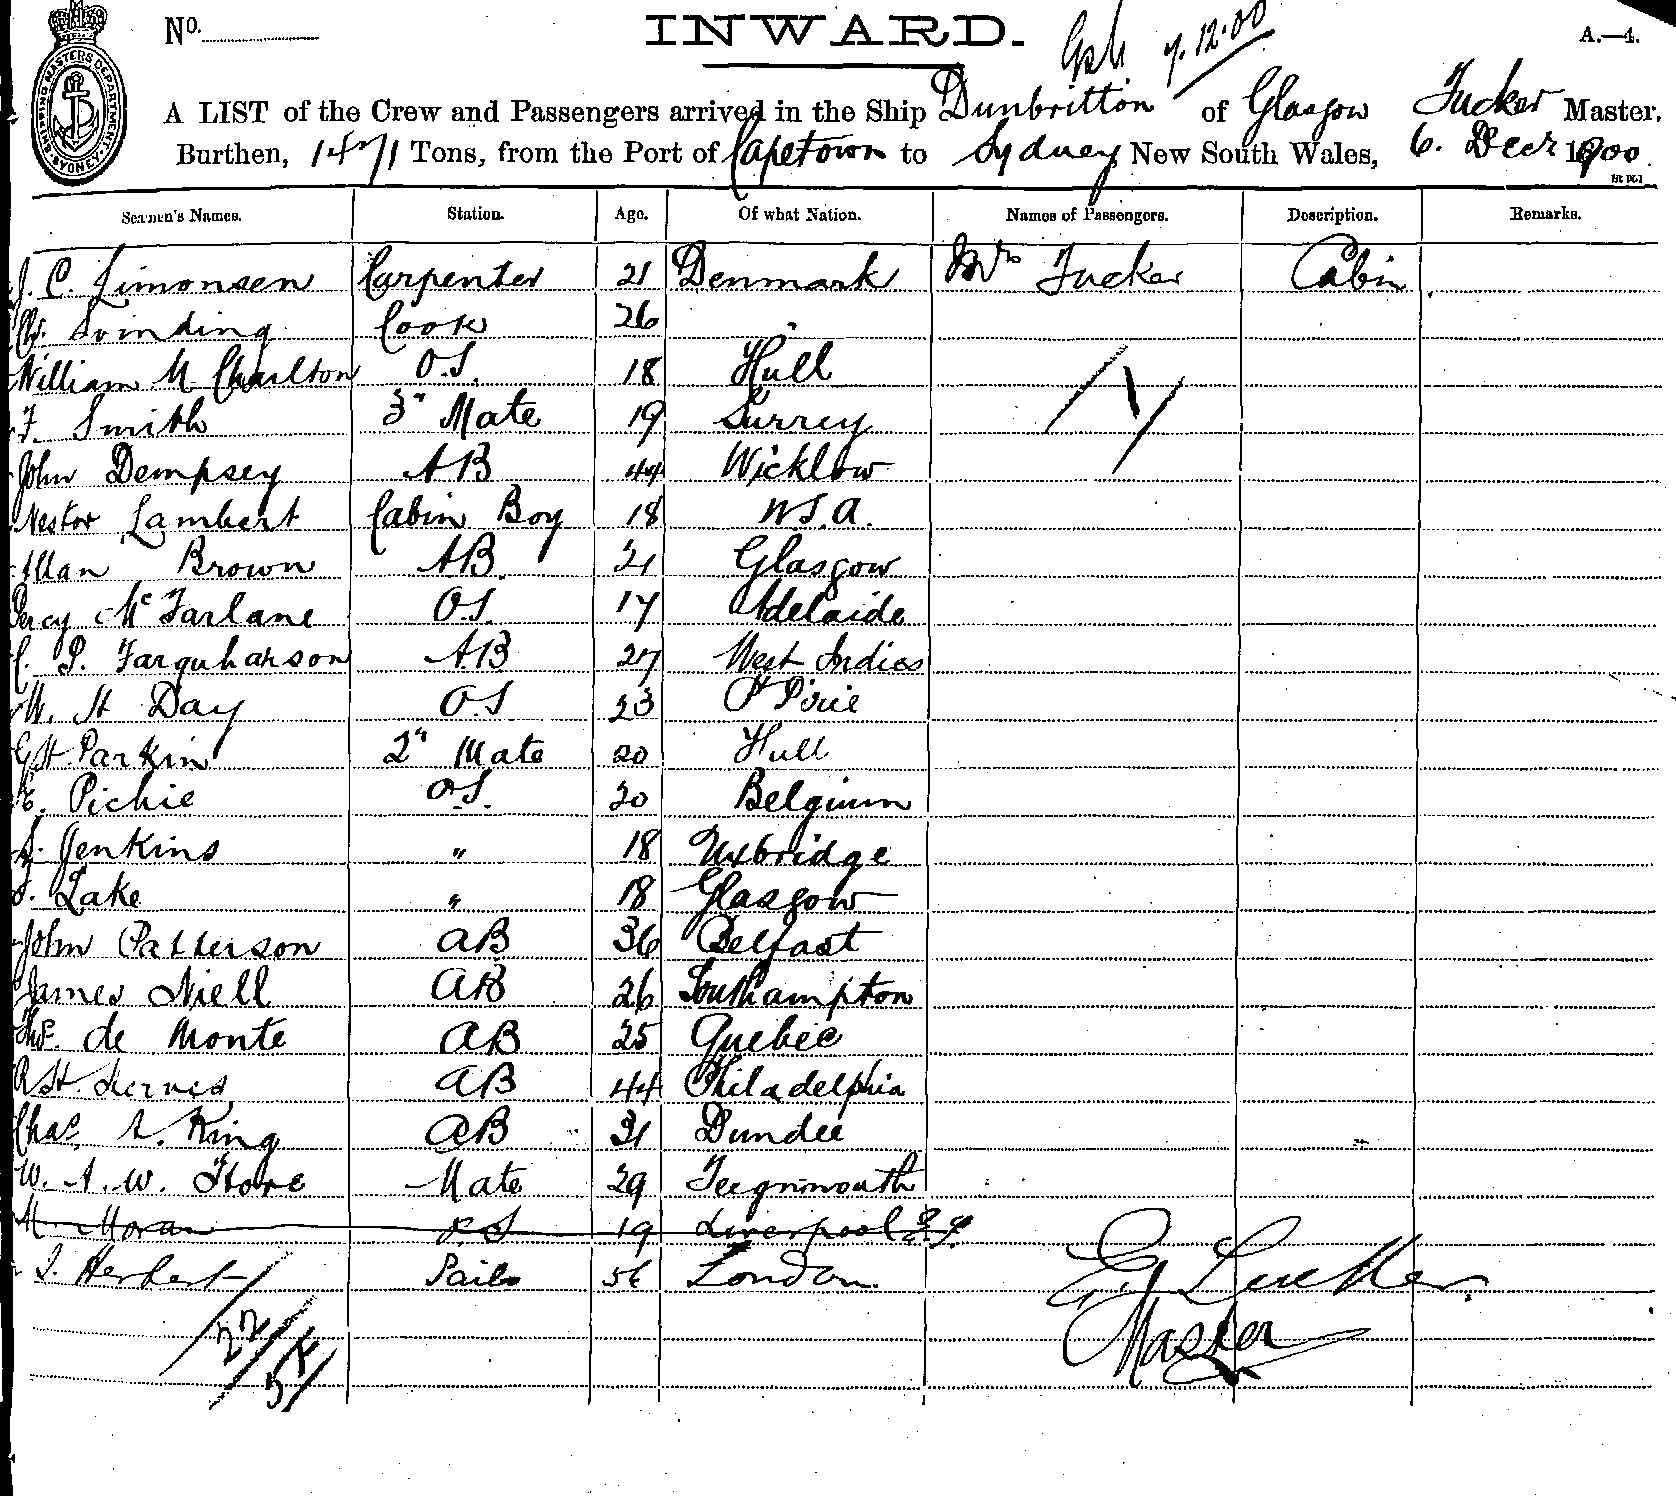 No.
INWARD.
7.12.00
A.—4.
SHIPPING MASTERS DEPARTMENT SYDNEY
A LIST of the Crew and Passengers arrived in the Ship Dunbritton of Glasgow Tucker Master.
Burthen, 1471 Tons, from the Port of Capetown to Sydney New South Wales, 6. Decr 1900.
Seamen's Names. Station. Age. Of what Nation. Names of Passengers. Description. Remarks.
J. C. Simonsen Carpenter 21 Denmark Mrs Tucker Cabin
Svinding Cook 26 "
William M Charlton O.S. 18 Hull
F. Smith 3" Mate 19 Surrey
John Dempsey AB 44 Wicklow
Nestor Lambert Cabin Boy 18
Allan Brown AB. 21 Glasgow
Percy McFarlane O.S. 17 Adelaide
C. P. Farquharson AB 27 West Indies
W. H Day O.S 23 Pt Pirie
G H Parkin 2" Mate 20 Hull
E. Pichie O.S. 20 Belgium
Jenkins " 18 Uxbridge
Lake " 18 Glasgow
John Patterson AB 36 Belfast
James Niell AB 26 Southampton
Thos. de Monte AB 25 Quebec
AB 44 Philadelphia
Chas. A. King AB 31 Dundee
W. A. W. Hore Mate 29 Teignmouth
M. Moran O.S 19 Liverpool
Herbert Sails 56 London.
E Tucker
Master
22